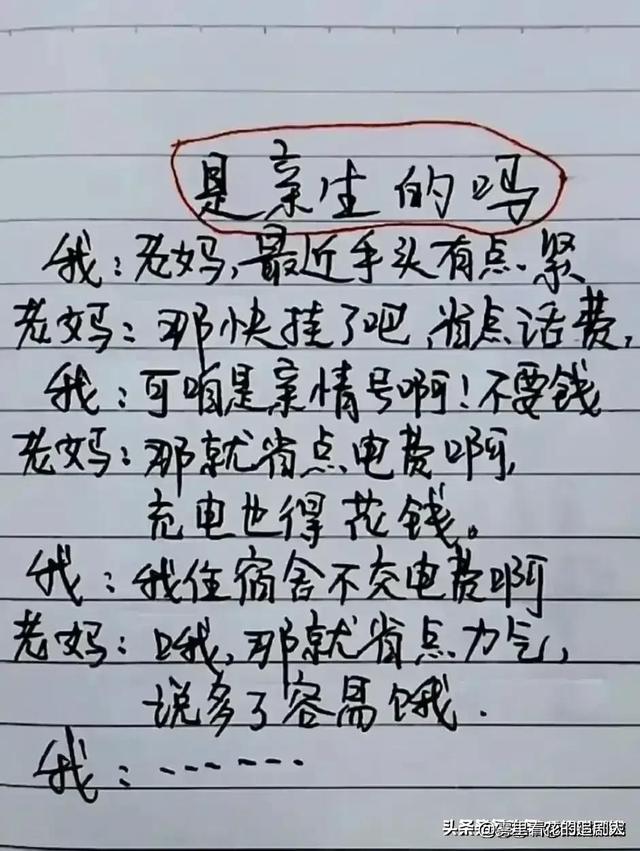 是亲生的吗
我:老妈,最近手头有点紧
老妈:那快挂了吧,省点话费,
我:可咱是亲情号啊!不要钱
老妈:那就省点电费啊,
充电也得花钱。
我:我住宿舍不交电费啊
老妈:哦,那就省点力气,
说多了容易饿.
我:……
头条